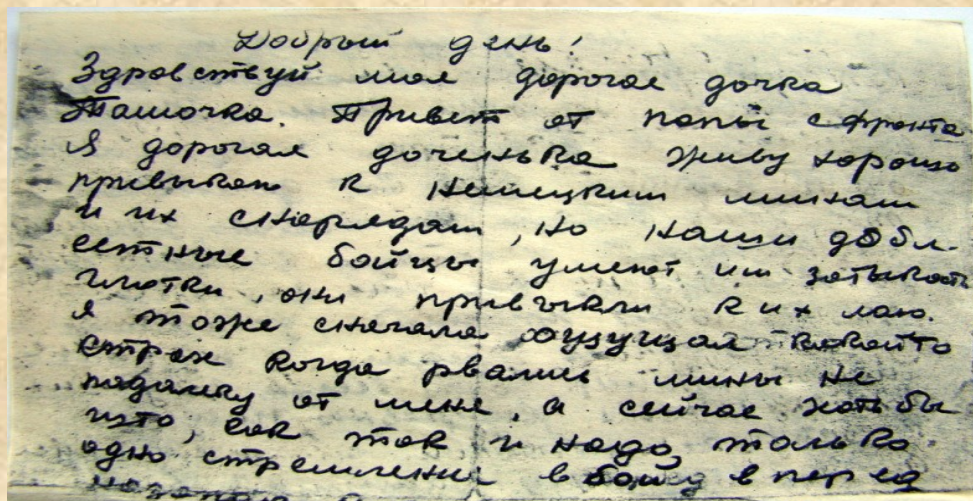 Добрый день!
Здравствуй моя дорогая дочка
Ташочка. Привет от папы с фронта
Я дорогая доченька живу хорошо
привыкаю к немецким минам
и их снарядам, но наши добл-
естные бойцы умеют им затыкать
глотки, они привыкли к их лаю.
Я тоже сначала ощущал какойто
страх когда рвались мины не
подалеку от меня, а сейчас хотьбы
што, как так и надо, только
одно стремление в бой, в перед